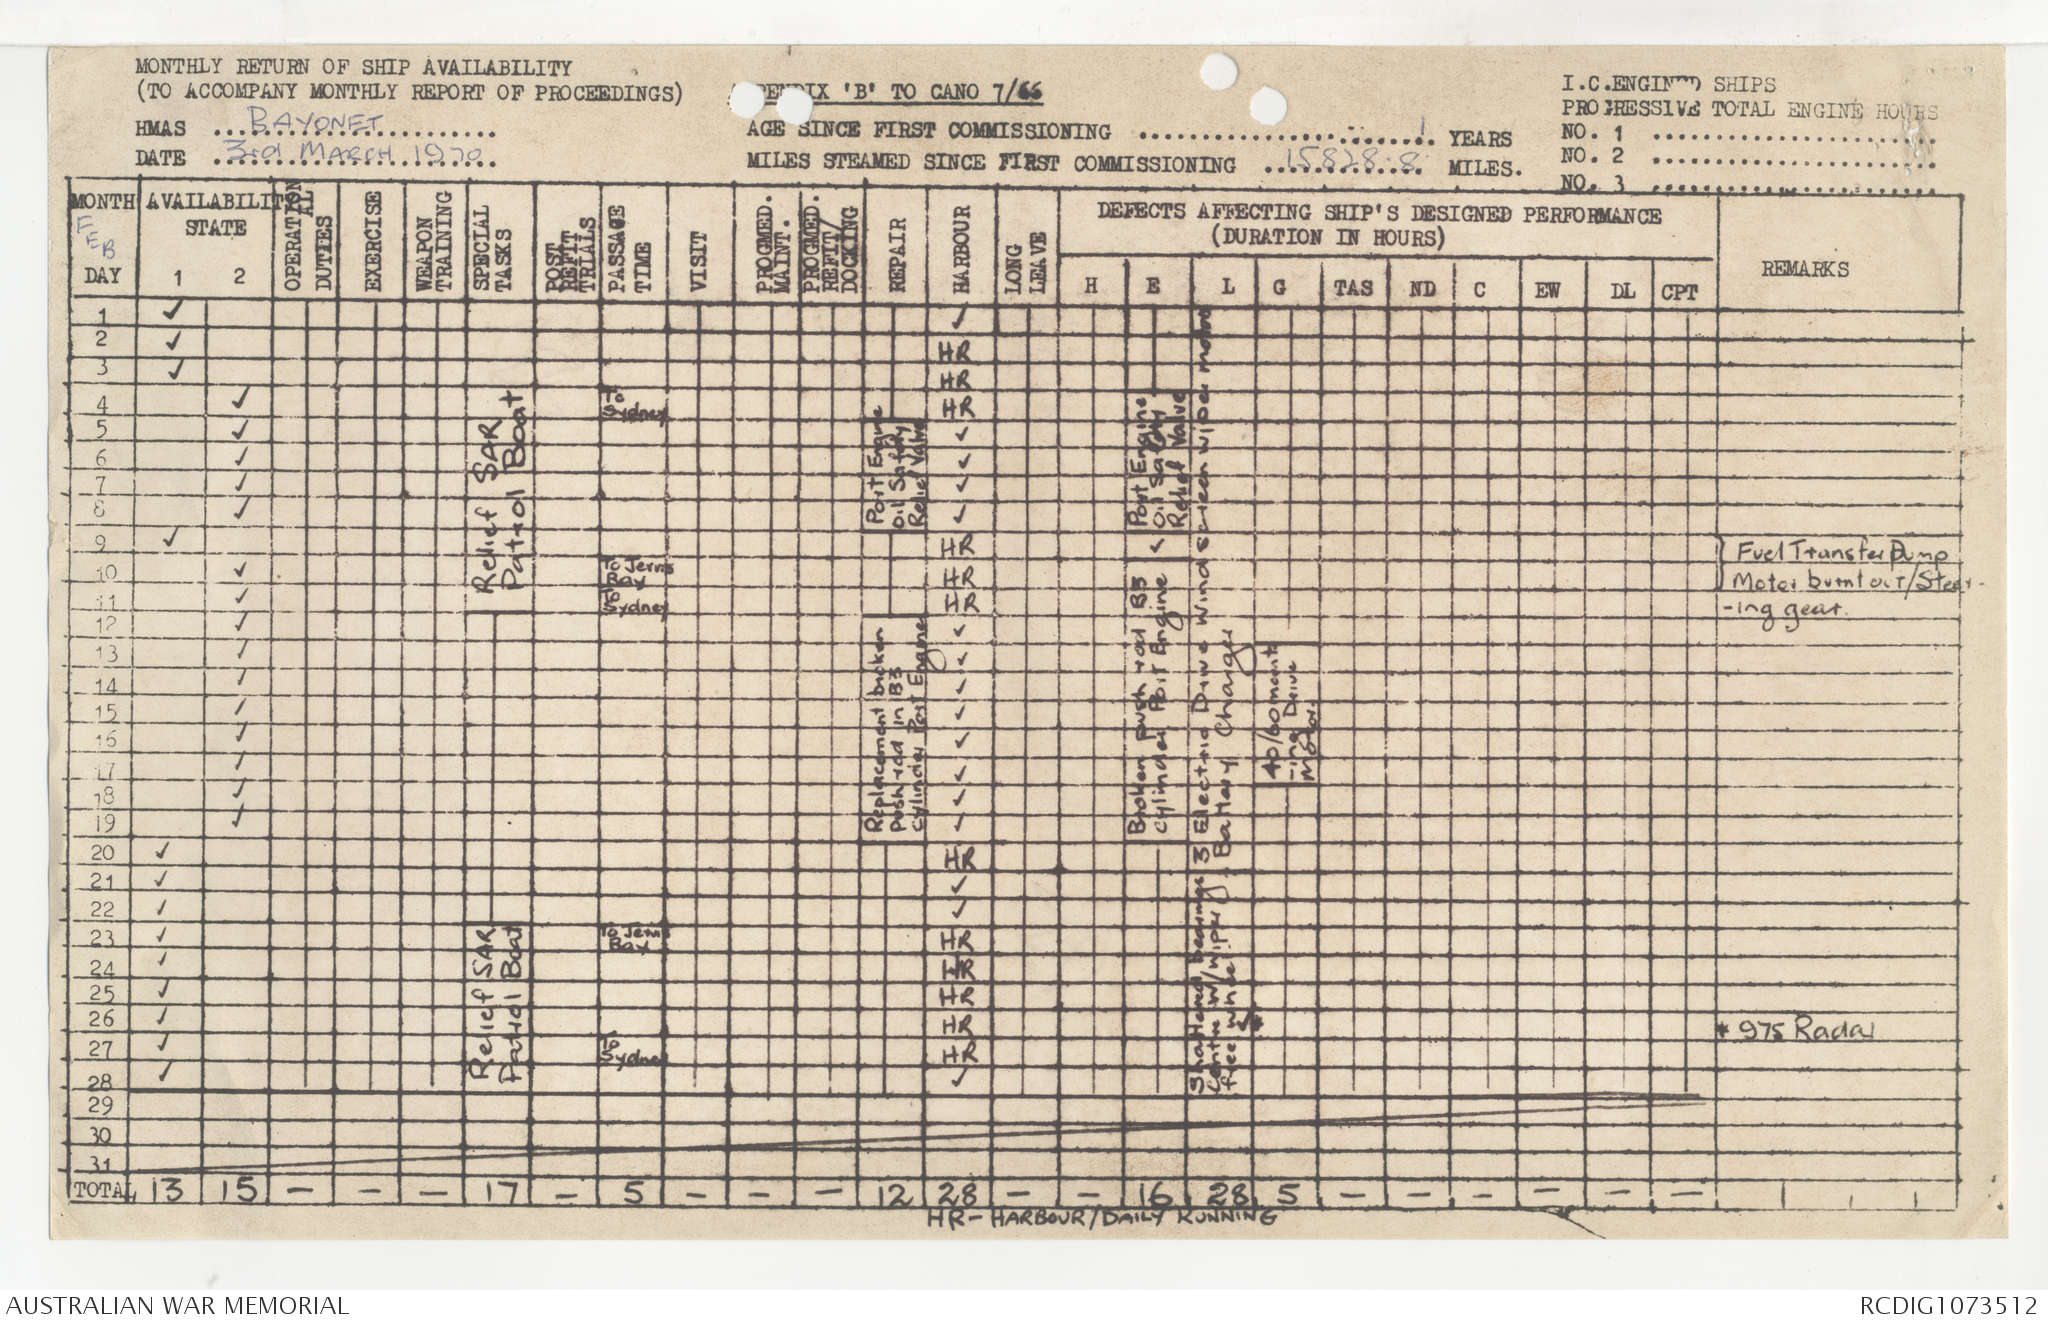 MONTHLY RETURN OF SHIP AVAILABILITY
(TO ACCOMPANY MONTHLY REPORT OF PROCEEDINGS)
'B' TO CANO 7/66
I.C. SHIPS
TOTAL ENGINE HOURS
HMAS BAYONET
AGE SINCE FIRST COMMISSIONING 1 YEARS
NO. 1
DATE 3rd MARCH 1970
MILES STEAMED SINCE FIRST COMMISSIONING 15828.8 MILES.
NO. 2
NO. 3
MONTH FEB
DAY
AVAILABILITY STATE
1 2
OPERATIONAL DUTIES
EXERCISE
WEAPON TRAINING
SPECIAL TASKS
POST REFIT TRIALS
PASSAGE TIME
VISIT
PROGMED. MAINT.
PROGMED. REFIT/ DOCKING
REPAIR
HARBOUR
LONG LEAVE
DEFECTS AFFECTING SHIP'S DESIGNED PERFORMANCE
(DURATION IN HOURS)
H E L G TAS ND C EW DL CPT
REMARKS
1 ✓ ✓
2 ✓ HR
3 ✓ HR
4 ✓ To Sydney HR
5 ✓ ✓
6 ✓ ✓
7 ✓ ✓
8 ✓ ✓
9 ✓ HR ✓
10 ✓ To Jervis Bay HR
11 ✓ To Sydney HR
12 ✓ ✓
13 ✓ ✓
14 ✓ ✓
15 ✓ ✓
16 ✓ ✓
17 ✓ ✓
18 ✓ ✓
19 ✓ ✓
20 ✓ HR
21 ✓ ✓
22 ✓ ✓
23 ✓ To Jervis Bay HR
24 ✓ HR
25 ✓ HR
26 ✓ HR ✓*
27 ✓ To Sydney HR
28 ✓ ✓
29
30
31
Relief SAR
Patrol Boat
Relief SAR
Patrol Boat
Port Engine
Oil Safety
Relief Valve
Replacement broken
push rod in B3
Cylinder Port Engine
Port Engine
Oil Safety
Relief Valve
Broken push rod B3
Cylinder Port Engine
3 Electric Drive Wind screen wiper motors
Battery Charger
Shattered bearings
Centre w/wiper
free wheel
40/60 mount
-ing Drive
Motor.
Fuel Transfer Pump
Motor burnt out/Steer-
-ing gear.
* 975 Radar
TOTAL 13 15 - - - 17 - 5 - - - 12 28 - - 16 28 5 - - - - - -
HR - HARBOUR/DAILY RUNNING
AUSTRALIAN WAR MEMORIAL
RCDIG1073512